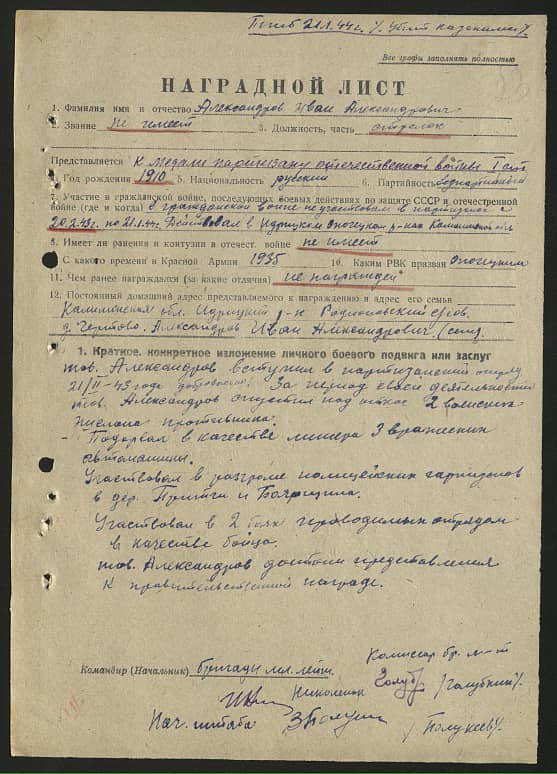 Погиб 21.1.44 г. /. убит казаками /.
Все графы заполнять полностью
НАГРАДНОЙ ЛИСТ
1. Фамилия имя и отчество Александров Иван Александрович
2. Звание не имеет 3. Должность, часть
Представляется к медали партизану отечественной войны I ст
4. Год рождения 1910 5. Национальность русский 6. Партийность беспартийный
7. Участие в гражданской войне, последующих боевых действиях по защите СССР и отечественной
войне (где и когда) в гражданской войне не участвовал в партизанах с
20.2.43 г. по 21.1.44 г. Действовал в Идрицком Опочецком р-нах Калининской обл
8. Имеет ли ранения и контузии в отечест. войне не имеет
9. С какого времени в Красной Армии 1935 10. Каким РВК призван Опочецким
11. Чем ранее награжден (за какие отличия) не награжден
12. Постоянный домашний адрес представляемого к награждению и адрес его семьи
Калининская обл. Идрицкий р-н
д. Чертово. Александров Иван Александрович
1. Краткое, конкретное изложение личного боевого подвига или заслуг
тов. Александров вступил в партизанский отряд
21/II-43 года добровольно. За период своей деятельности
тов. Александров опустил под откос 2 воинских
эшелона противника.
- Подорвал в качестве минера 3 вражеских
автомашины.
Участвовал в разгроме полицейских гарнизонов
в дер. Притчи и Боярщина.
Участвовал в 2 боях проводимых отрядом
в качестве бойца.
тов. Александров достоин представления
к правительственной награде.
Комиссар бр.
Командир (Начальник) бригады мл. лейт.
Голуб /Голубкин/.
Нач. штаба